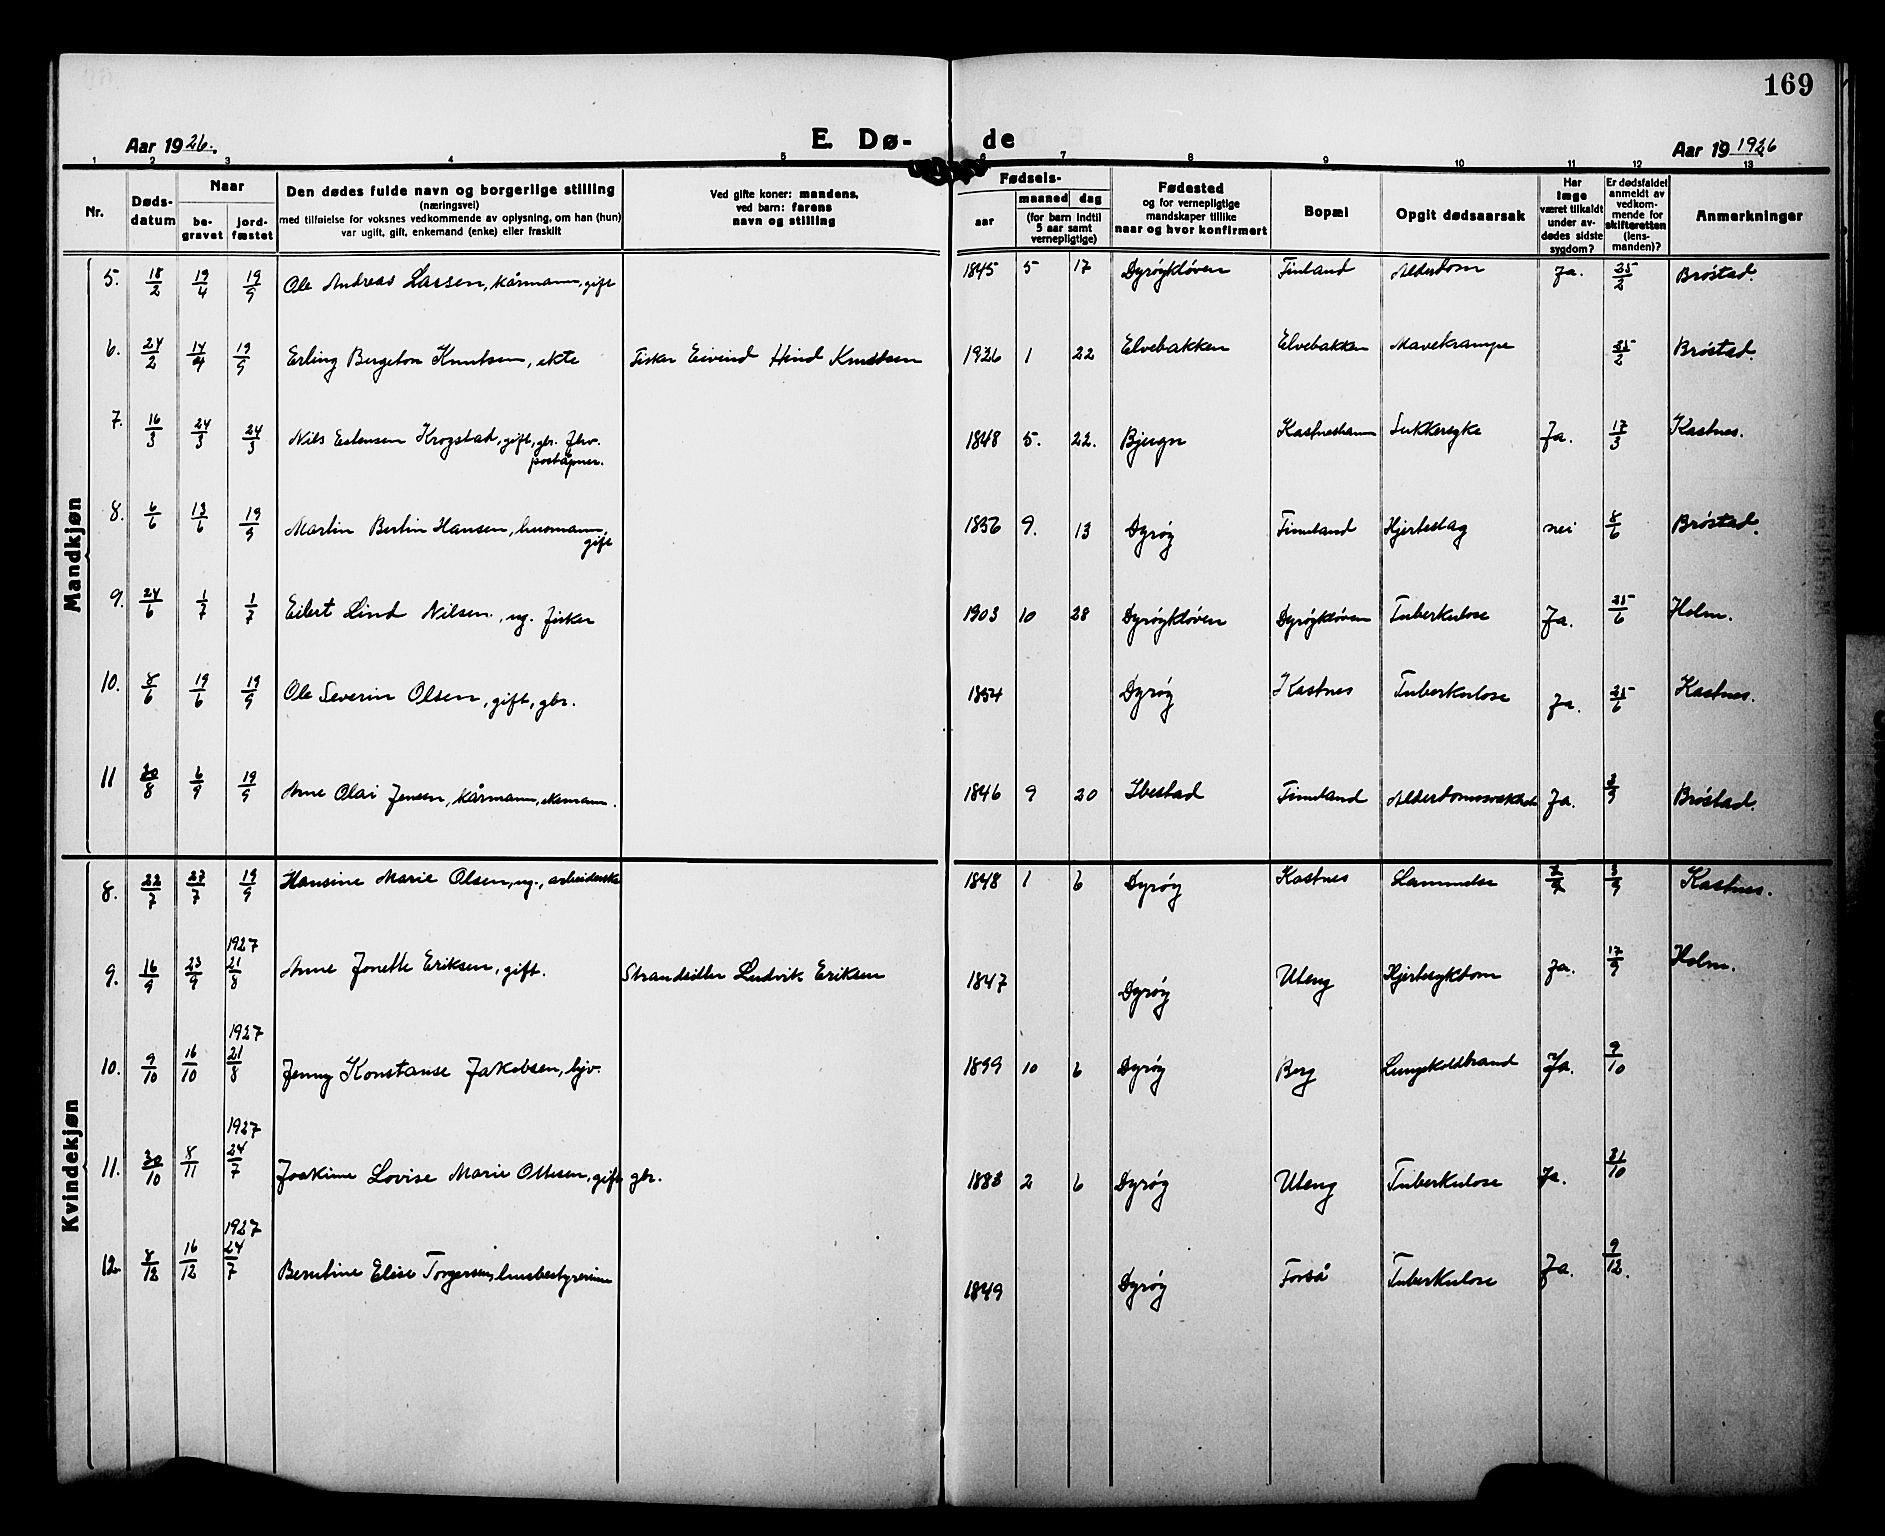 169
Aar 1926.
E. Dø-
de
Aar 19 1926
1 2 3 4 5 6 7 8 9 10 11 12 13
Nr.
Døds-
datum
Naar
be-
gravet
jord-
fæstet
Den dødes fulde navn og borgerlige stilling
(næringsvei)
med tilføielse for voksnes vedkommende av oplysning, om han (hun)
var ugift, gift, enkemand (enke) eller fraskilt
Ved gifte koner: mandens,
ved barn: farens
navn og stilling
Fødsels-
aar
maaned dag
(for barn indtil
5 aar samt
vernepligtige)
Fødested
og for vernepligtige
mandskaper tillike
naar og hvor konfirmert
Bopæl
Opgit dødsaarsak
Har
læge
været tilkaldt
under av-
dødes sidste
sygdom?
Er dødsfaldet
anmeldt av
vedkom-
mende for
skifteretten
(lens-
manden)?
Anmerkninger
Mandkjøn
5. 18/2 19/4 19/9 Ole Andreas Lassen, kårmann, gift 1845 5 17 Dyrøykløven Finland Alderdom Ja. 25/2 Brøstad.
6. 24/2 14/4 19/9 Erling Bergeton Knutsen, ekte Fisker Eivind Hind Knutsen 1926 1 22 Elvebakken Elvebakken Mavekrampe 25/2 Brøstad.
7. 16/3 24/3 24/3 Nils Estensen Krogstad, gift, gbr. fhv. 1848 5. 22. Bjugn Kastneshamn Sukkersyke Ja. 17/3 Kastnes.
poståpner.
8. 6/6 13/6 19/9 Martin Bertin Hansen, husmann, 1836 9. 13 Dyrøy Finnland Hjerteslag nei 8/6 Brøstad.
gift
9. 24/6 1/7 1/7 Eilert Lind Nilsen, ug. fisker 1903 10 28 Dyrøykløven Dyrøykløven Tuberkulose Ja. 25/6 Holm.
10. 8/6 19/6 19/9 Ole Severin Olsen, gift, gbr. 1854 Dyrøy Kastnes Tuberkulose Ja. 25/6 Kastnes.
11 30/8 6/9 19/9 Arne Olai Jensen, kårmann, ekemann. 1846 9 20 Ibestad Finnland Alderdomssvakhet Ja. 3/9 Brøstad.
Kvindekjøn
8. 22/7 27/7 19/9 Hansine Marie Olsen, ug., arbeiderske 1848 1 6 Dyrøy Kastnes Lammelse 3/9 Kastnes.
9. 16/9 23/9 1927 21/8 Anne Jonette Eriksen, gift. Strandsitter Ludvik Eriksen 1847 Dyrøy Uteng Hjertesykdom Ja. 17/9 Holm.
10. 9/10 16/10 1927 21/8 Jenny Konstanse Jakobsen, hjv. 1899 10 6 Dyrøy Berg Lungekoldbrand Ja. 9/10
11. 30/10 8/11 1927 24/7 Joakime Lovise Marie Ottesen, gift gbr. 1883 2 6 Dyrøy Uteng Tuberkulose Ja. 31/10
12. 8/12 16/12 1927 24/7 Berntine Elise Torgersen, husbestyrerinne 1849 Dyrøy Forså Tuberkulose Ja. 9/12.